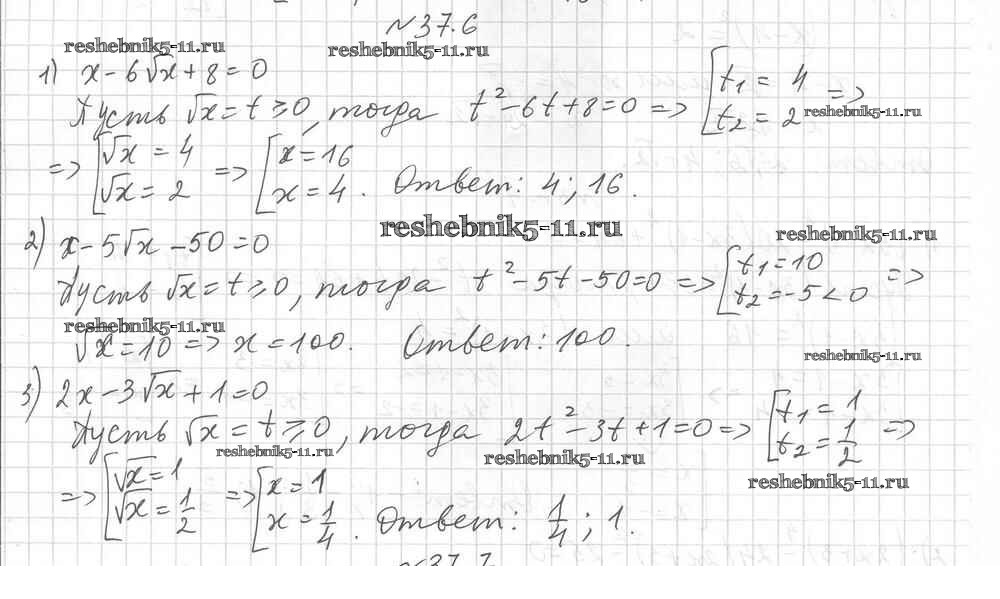 №37.6
reshebnik5-11.ru reshebnik5-11.ru
1) x - 6√x + 8 = 0
Пусть √x = t ≥ 0, тогда t² - 6t + 8 = 0 => [ t₁ = 4 t₂ = 2 =>
reshebnik5-11.ru
=> [ √x = 4 √x = 2 => [ x = 16 x = 4. Ответ: 4; 16.
reshebnik5-11.ru reshebnik5-11.ru
2) x - 5√x - 50 = 0
Пусть √x = t ≥ 0, тогда t² - 5t - 50 = 0 => [ t₁ = 10 t₂ = -5 < 0 =>
reshebnik5-11.ru
√x = 10 => x = 100. Ответ: 100.
reshebnik5-11.ru
3) 2x - 3√x + 1 = 0
Пусть √x = t ≥ 0, тогда 2t² - 3t + 1 = 0 => [ t₁ = 1 t₂ = 1/2 =>
reshebnik5-11.ru reshebnik5-11.ru
reshebnik5-11.ru
=> [ √x = 1 √x = 1/2 => [ x = 1 x = 1/4. Ответ: 1/4; 1.